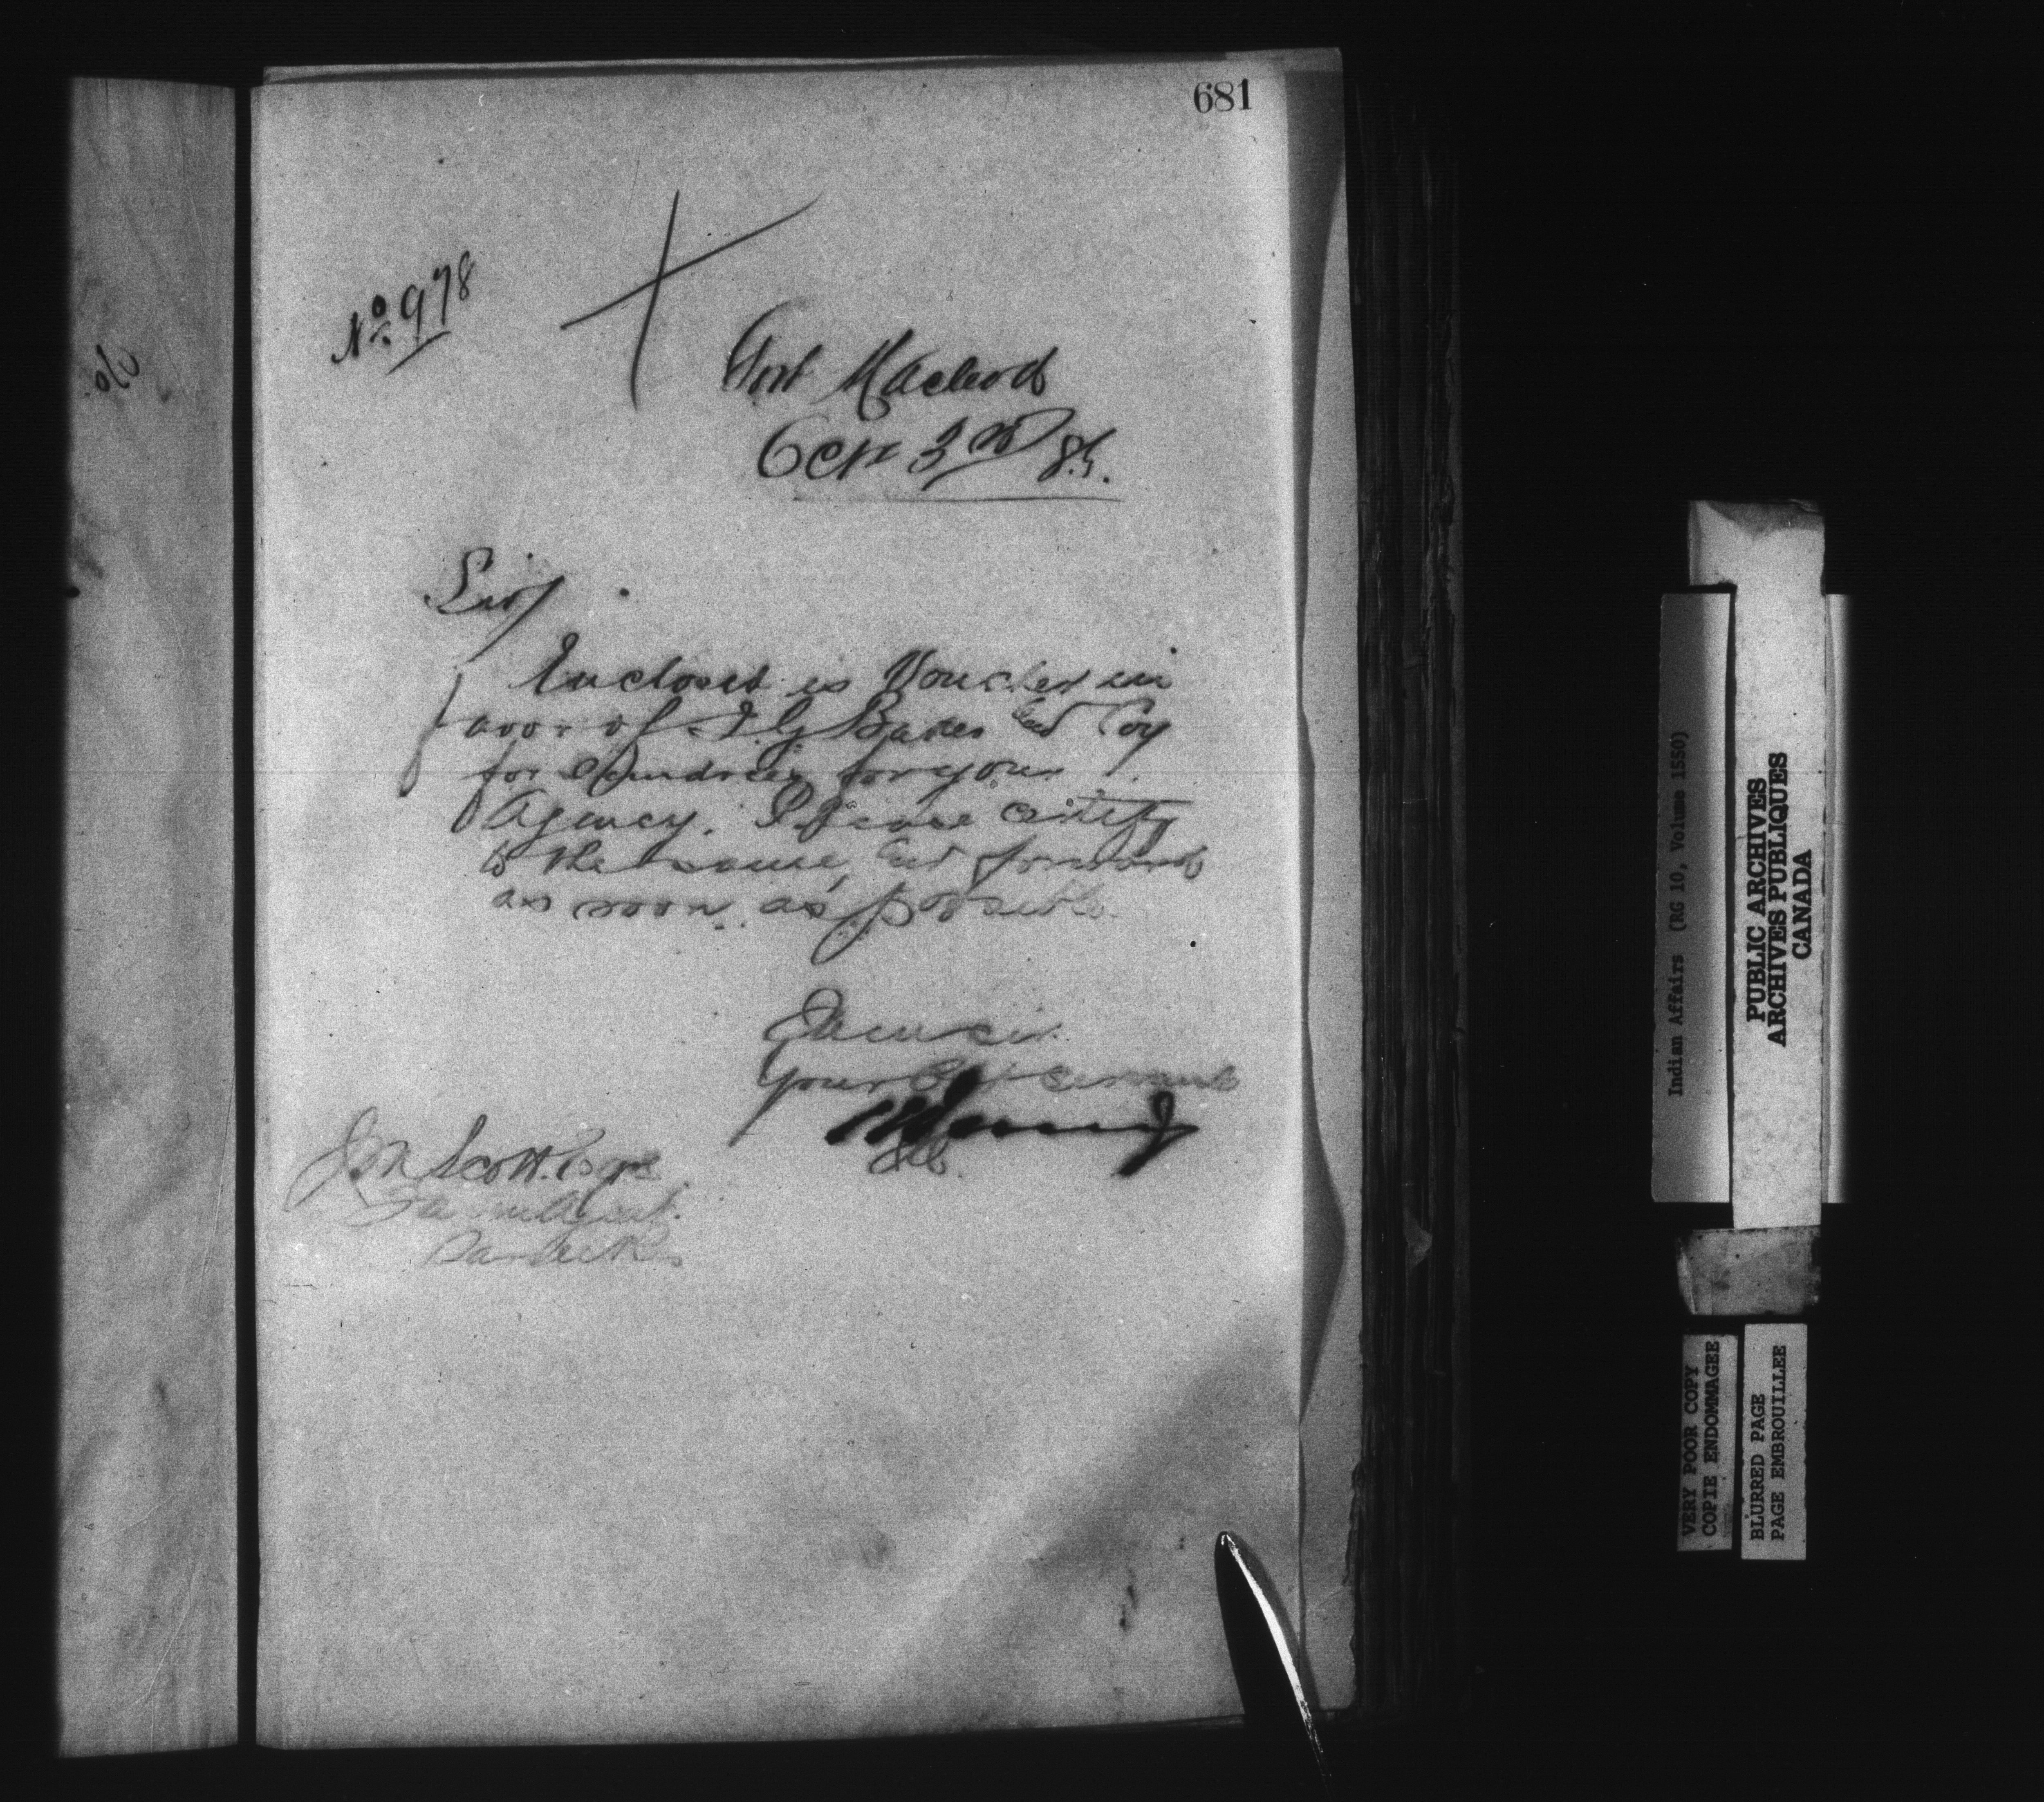 681
No. 978
Fort Macleod
Oct 3rd 85.
Sir,
Enclosed is Voucher in
favor of I G Baker and Coy
for Sundries for your
Agency. Please certify
to the same and forward
as soon as possible.
I am sir
Your Obt servant
J M Scott Esqre
Farm Agent
Indian Affairs (RG 10, Volume 1550)
PUBLIC ARCHIVES
ARCHIVES PUBLIQUES
CANADA
VERY POOR COPY
COPIE ENDOMMAGEE
BLURRED PAGE
PAGE EMBROUILLEE